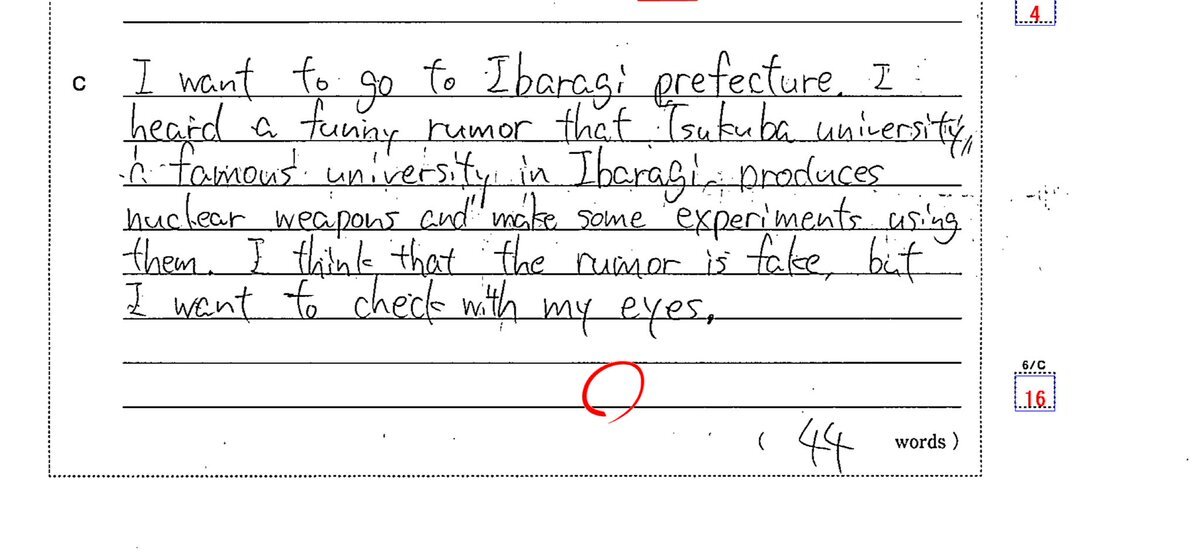 4
C I want to go to Ibaragi prefecture. I
heard a funny rumor that Tsukuba university,
a famous university in Ibaragi, produces
nuclear weapons and make some experiments using
them. I think that the rumor is fake, but
I want to check with my eyes.
6/C
16
( 44 words )